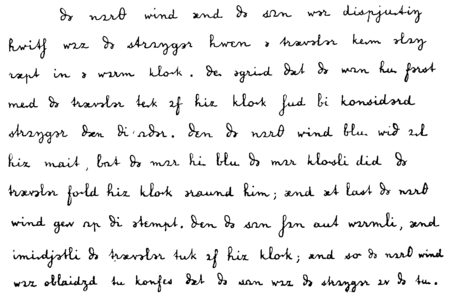 ðə nɔrθ wind ænd ðə sʌn wər dispjutiŋ
hwitʃ wɔz ðə strɔŋgər hwen ə trævələr keim əlɔŋ
ræpt in ə wɔrm klok. ðei əgrid ðæt ðə wʌn hu fərst
meid ðə trævələr teik ɔf hiz klok ʃud bi konsidərd
strɔŋgər ðæn ði ʌðər. ðen ðə nɔrθ wind blu wið ɔl
hiz mait, bʌt ðə mɔr hi blu ðə mɔr klosli did ðə
trævələr fold hiz klok əraund him; ænd æt last ðə nɔrθ
wind geiv ʌp ði ətempt. ðen ðə sʌn ʃɔn aut wɔrmli, ænd
imidjətli ðə trævələr tuk ɔf hiz klok; ænd so ðə nɔrθ wind
wɔz oblaidʒd tu konfes ðæt ðə sʌn wɔz ðə strɔŋgər əv ðə tu.